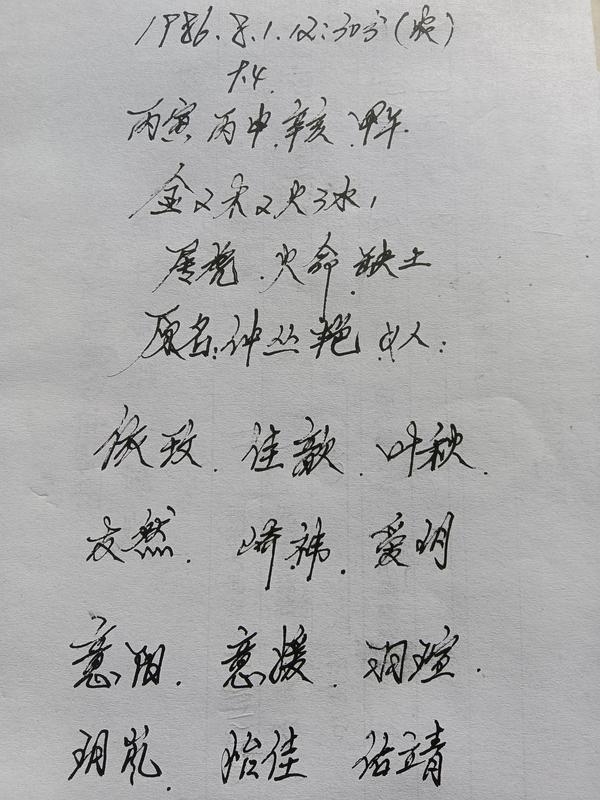 1986.8.1.12:30分(农)
大4.
丙寅 丙申 辛亥 甲午
金2木2火3水1
属虎.火命.缺土
原名:钟丛艳 女人:
依玫.佳歆.叶秋.
友然.崎祎.爱玥
意阳.意媛.羽瑄.
玥岚.怡佳 佑靖